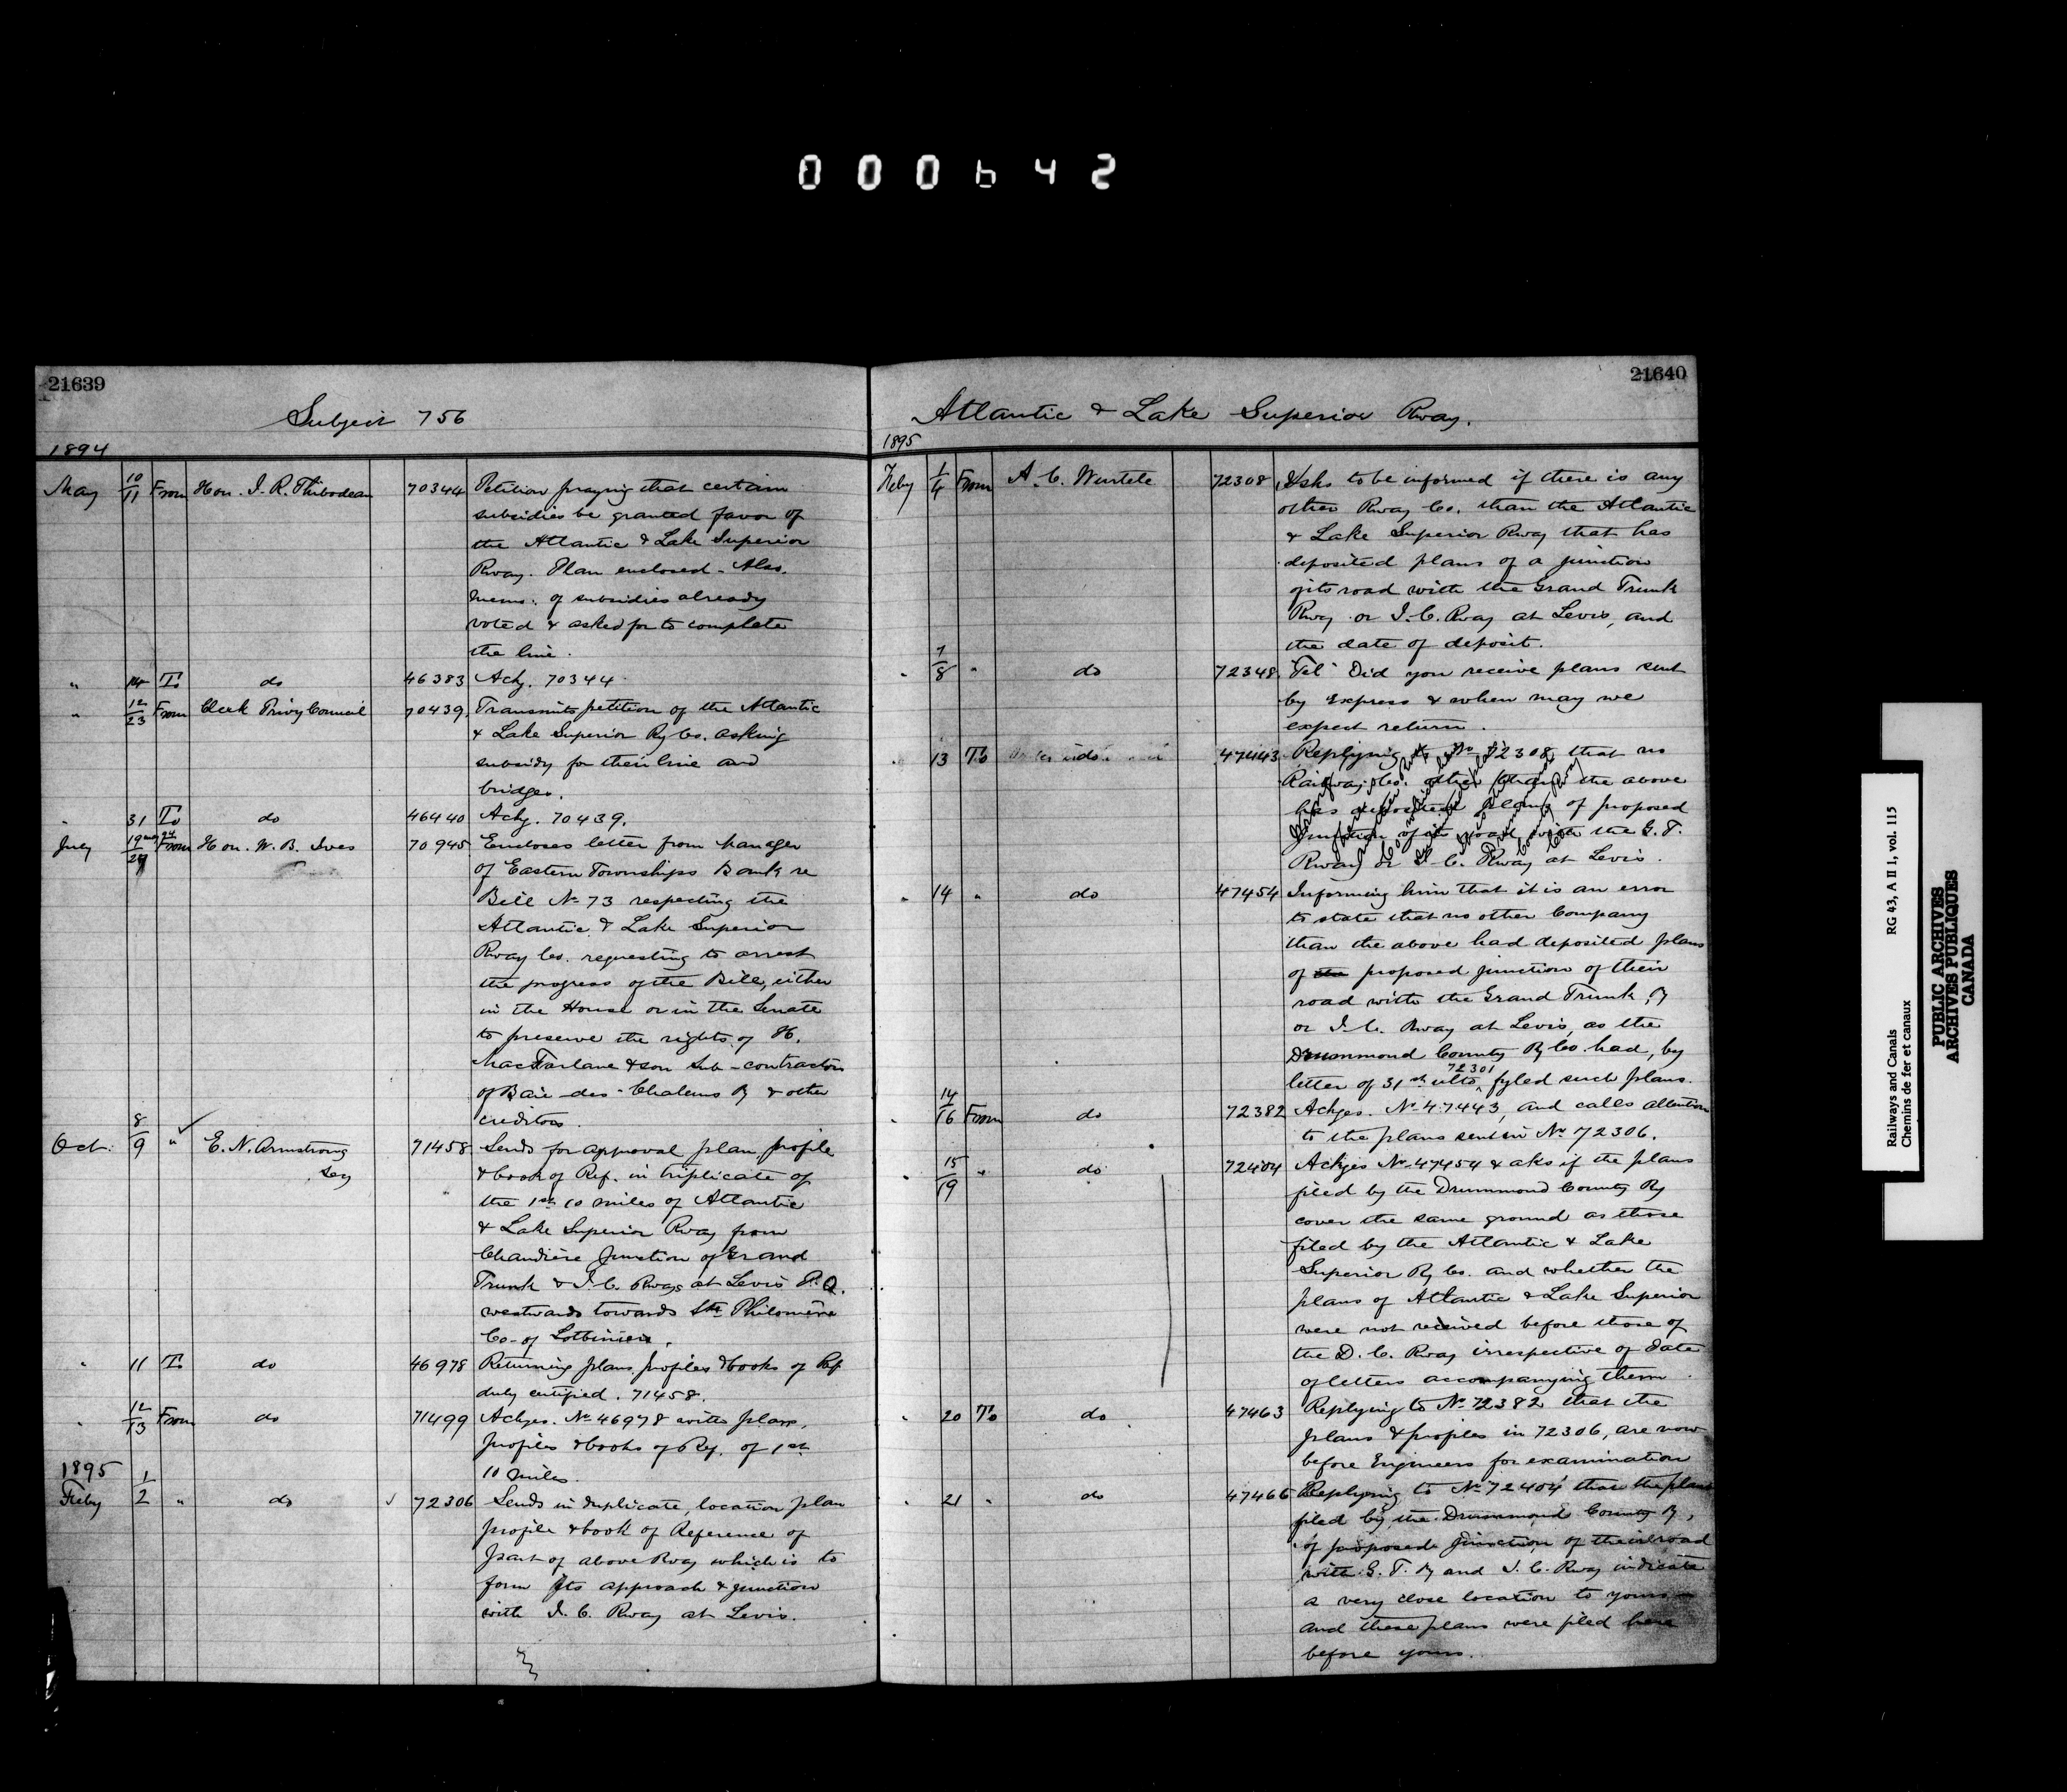 000642
21639
Subject 756
1894
May 10/11 From Hon. I. R. Thibodeau 70344 Petition praying that certain
subsidies be granted favor of
the Atlantic & Lake Superior
Rway. Plan enclosed - Also.
memo: of subsidies already
voted & asked for to complete
the line.
" 14 To do 46383 Ackg. 70344
" 12/23 From Clerk Privy Council 70439 Transmits petition of the Atlantic
& Lake Superior Ry Co. asking
subsidy for their line and
bridges.
" 31 To do 46440 Ackg. 70439.
July 19/24 From Hon. W. B. Ives 70945 Encloses letter from Manager
of Eastern Townships Bank re
Bill No 73 respecting the
Atlantic & Lake Superior
Rway Co. requesting to arrest
the progress of the Bill, either
in the House or in the Senate
to preserve the rights of H.
MacFarlane & son sub-contractors
of Baie des Chaleurs Ry & other
creditors.
Oct. 8/9 " E. N. Armstrong 71458 Sends for approval plan, profile
Secy & book of Ref. in triplicate of
the 1st 10 miles of Atlantic
& Lake Superior Rway from
Chaudière Junction of Grand
Trunk & I. C. Rways at Levis P.Q.
westwards towards Ste Philomène
Co. of Lotbiniere.
" 11 To do 46978 Returning plans, profiles & books of Ref
duly certified. 71458.
" 12/13 From do 71499 Ackges. No 46978 with plans,
profiles & books of Ref. of 1st
10 miles.
1895
Feby 1/2 " do 72306 Sends in duplicate, location plan
profile & book of Reference of
part of above Rway which is to
form its approach & junction
with I. C. Rway at Levis.
21640
Atlantic & Lake Superior Rway.
1895
Feby 1/4 From A. C. Wurtele 72308 Asks to be informed if there is any
other Rway Co. than the Atlantic
& Lake Superior Rway that has
deposited plans of a junction
of its road with the Grand Trunk
Rwy or I. C. Rway at Levis, and
the date of deposit.
" 7/8 " do 72348 "Tel" Did you receive plans sent
by express & when may we
expect return.
" 13 To do 47443 Replying to No 72308 that no
Railway Co. other than the above
has deposited plans of proposed
Junction of its road with the G. T.
Rway or I. C. Rway at Levis.
" 14 " do 47454 Informing him that it is an error
to state that no other Company
than the above had deposited plans
of the proposed junction of their
road with the Grand Trunk Ry
or I. C. Rway at Levis, as the
Drummond County Ry Co. had, by
letter of 31st ulto, 72301 fyled such plans.
" 14/16 From do 72382 Ackges. No 47443, and calls attention
to the plans sent in No 72306.
" 15/19 " do 72404 Ackges No 47454 & aks if the plans
filed by the Drummond County Ry
cover the same ground as those
filed by the Atlantic & Lake
Superior Ry Co. and whether the
plans of Atlantic & Lake Superior
were not received before those of
the D. C. Rway irrespective of date
of letters accompanying them.
" 20 To do 47463 Replying to No 72382 that the
plans & profiles in 72306, are now
before Engineers for examination
" 21 " do 47466 Replying to No 72404 that the plans
filed by the Drummond County Ry,
of proposed junction of their road
with G. T. Ry and I. C. Rway indicate
a very close location to yours
and these plans were filed here
before yours.
Railways and Canals RG 43, A II 1, vol. 115
Chemins de fer et canaux
PUBLIC ARCHIVES
ARCHIVES PUBLIQUES
CANADA